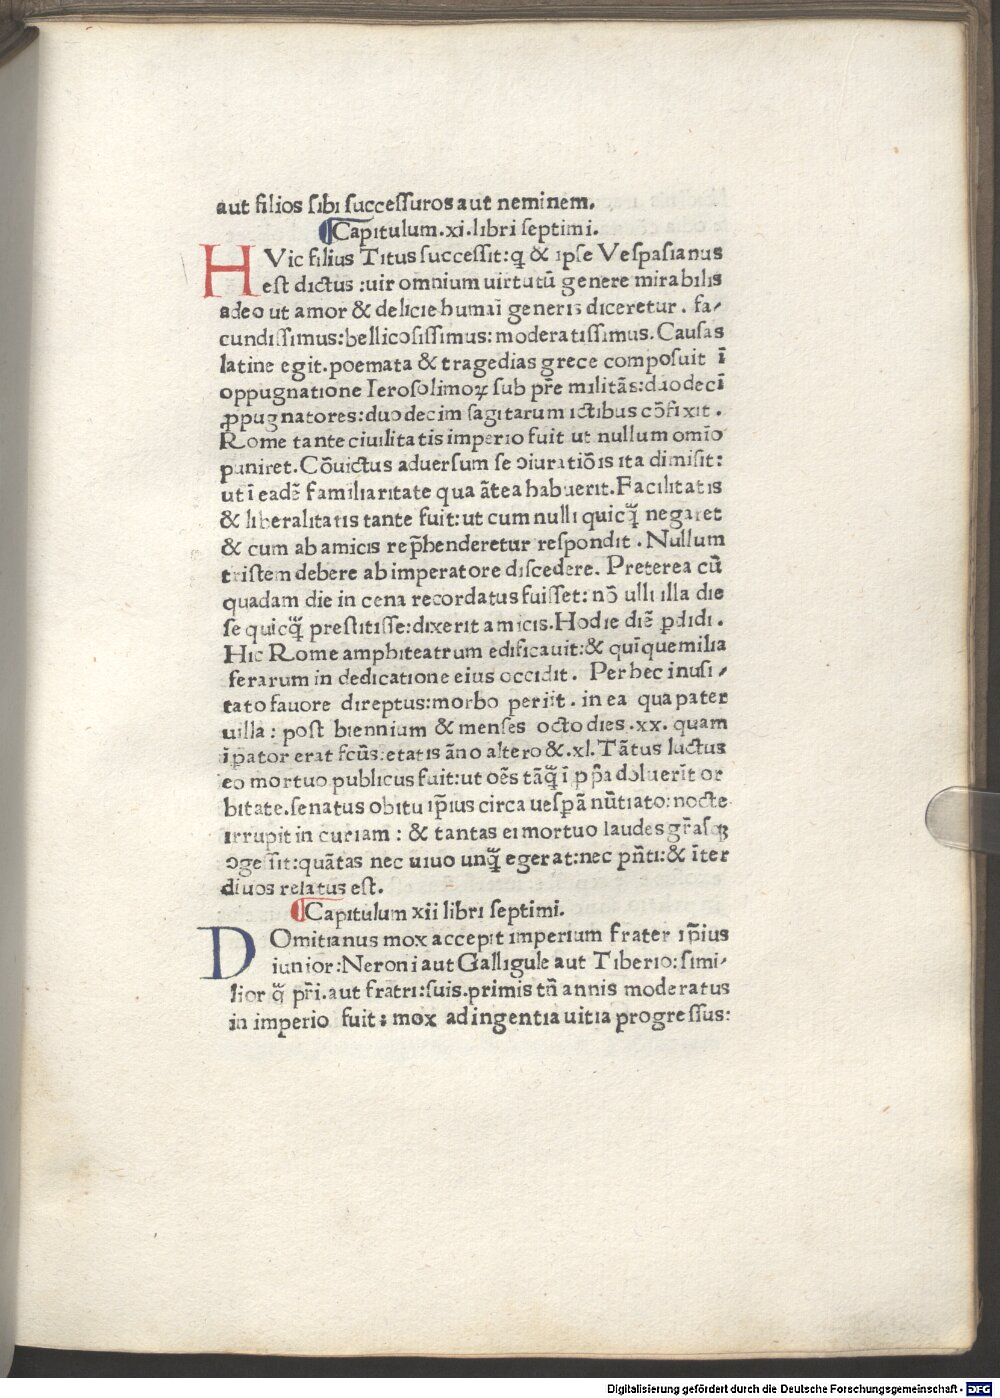 aut filios sibi successuros aut neminem.
Capitulum.xi.libri septimi.
HVic filius Titus successit:q & ipse Vespasianus
est dictus :uir omnium uirtutū genere mirabilis
adeo ut amor & delicie humaī generis diceretur . fa⸗
cundissimus:bellicosissimus:moderatissimus.Causas
latine egit.poemata & tragedias grece composuit ī
oppugnatione Ierosolimoꝝ sub pr̄e militās:duodecī
ꝓpugnatores:duodecim sagitarum ictibus cōfixit .
Rome tante ciuilitatis imperio fuit ut nullum omīo
puniret.Cōuictus aduersum se ↄiuratiōis ita dimisit:
ut ī eadē familiaritate qua ātea habuerit.Facilitatis
& liberalitatis tante fuit:ut cum nulli quicq̄ negaret
& cum ab amicis rep̄henderetur respondit . Nullum
tristem debere ab imperatore discedere. Preterea cū
quadam die in cena recordatus fuisset: nō ulli illa die
se quicq̄ prestitisse:dixerit amicis.Hodie diē ꝑdidi.
Hic Rome amphiteatrum edificauit:& quīque milia
ferarum in dedicatione eius occidit . Per hec inusi⸗
tato fauore direptus:morbo periit . in ea qua pater
uilla : post biennium & menses octo dies .xx. quam
īpator erat fcūs:etatis āno altero &.xl.Tātus luctus
eo mortuo publicus fuit:ut oēs tāq̄ ī ꝓp̄a doluerīt or
bitate.senatus obitu ip̄ius circa uesp̄ā nūtiato:nocte
irrupit in curiam : & tantas ei mortuo laudes gr̄asqꝫ
ↄgessit:quātas nec uiuo unq̄ egerat:nec pn̄ti:& īter
diuos relatus est.
Capitulum xii libri septimi.
DOmitianus mox accepit imperium frater ip̄ius
iunior:Neroni aut Galligule aut Tiberio:simi⸗
lior q̄ pr̄i.aut fratri:suis.primis tn̄ annis moderatus
in imperio fuit : mox ad ingentia uitia progressus:
Digitalisierung gefördert durch die Deutsche Forschungsgemeinschaft - DFG